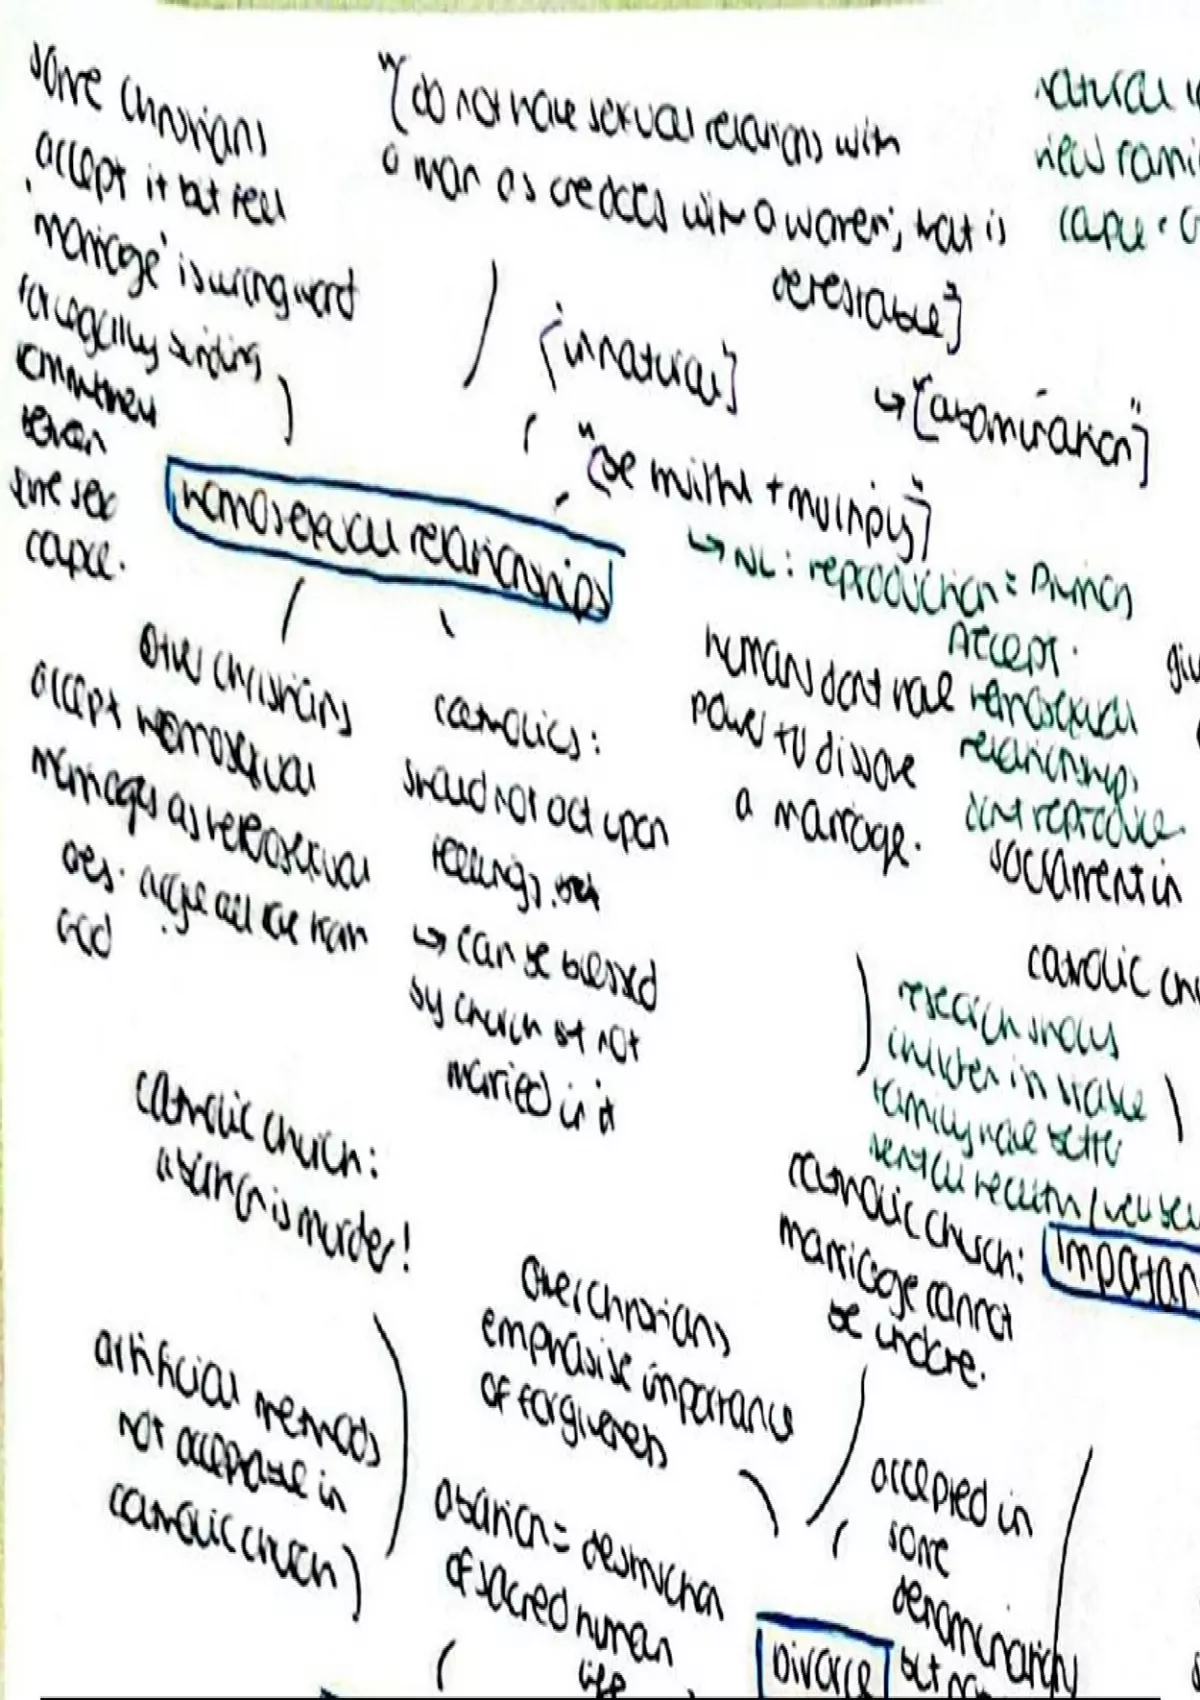 some christians
accept it but feel
'marriage' is wrong word
for legally binding
commitment
between
same sex
couple.
"[do not have sexual relations with
a man as one does with a woman; that is
detestable"]
[unnatural]
↳ ["abomination"]
"[be fruitful + multiply"]
↳ NL: reproduction = primary
precept.
homosexual
relationships
dont reproduce.
natural
view family
couple
homosexual relationships
other christians
accept homosexual
marriages as heterosexual
ones. argue all love from
God
catholics:
should not act upon
feelings.
↳ can be blessed
by church but not
married in it
humans dont have
power to dissolve
a marriage.
sacrament in
catholic
research shows
children in stable
family have better
mental health /
catholic church:
abortion is murder!
catholic church:
marriage cannot
be undone.
other christians
emphasise importance
of forgiveness
artificial methods
not acceptable in
catholic church)
abortion = destruction
of sacred human
life
accepted in
some
denominations
but
Divorce